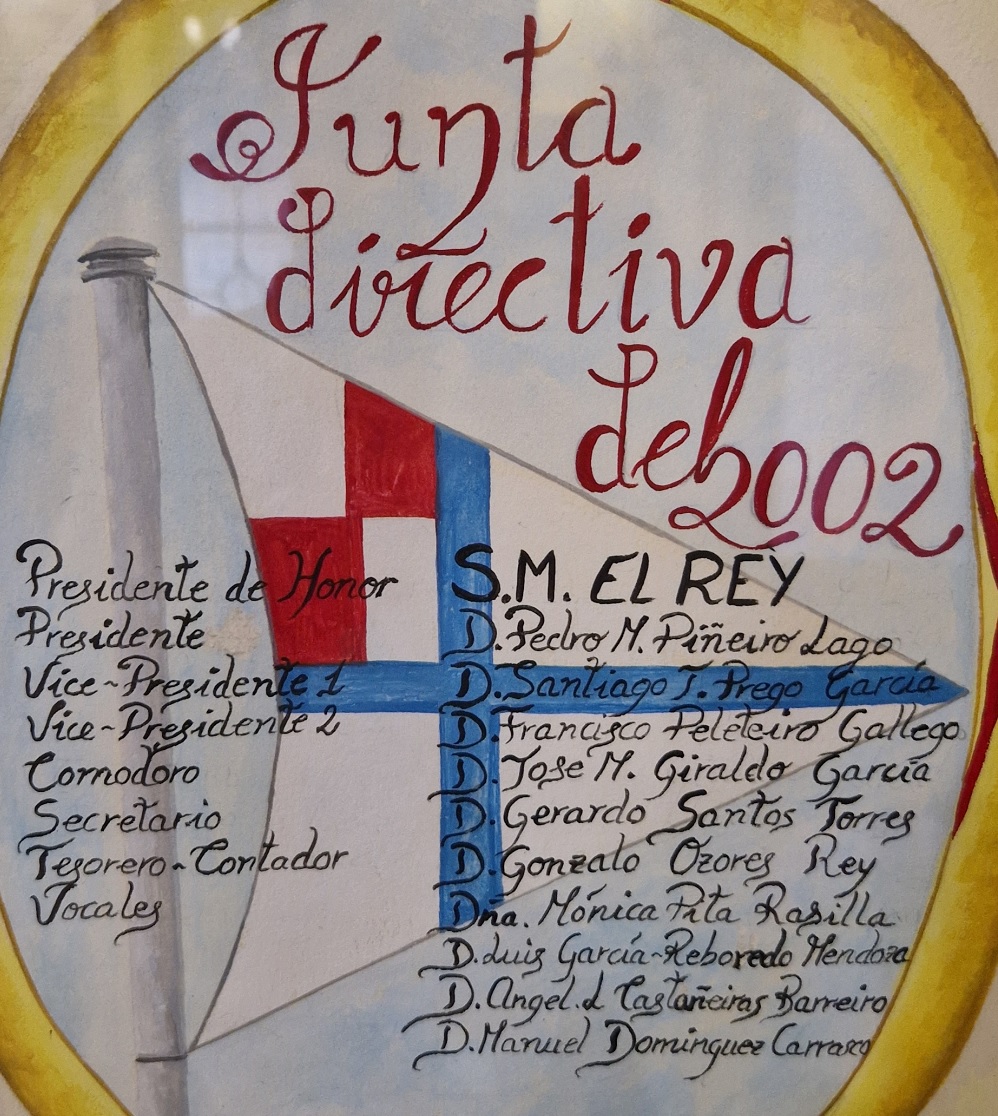 Junta
directiva
del 2002
Presidente de Honor S.M. EL REY
Presidente D. Pedro M. Piñeiro Lago
Vice-Presidente 1 D. Santiago J. Prego García
Vice-Presidente 2 D. Francisco Peleteiro Gallego
Comodoro D. Jose M. Giraldo García
Secretario D. Gerardo Santos Torres
Tesorero-Contador D. Gonzalo Ozores Rey
Vocales Dña. Mónica Pita Rasilla
D. Luis García-Reboredo Mendoza
D. Angel. L Castañeiras Barreiro
D. Manuel Dominguez Carrasco